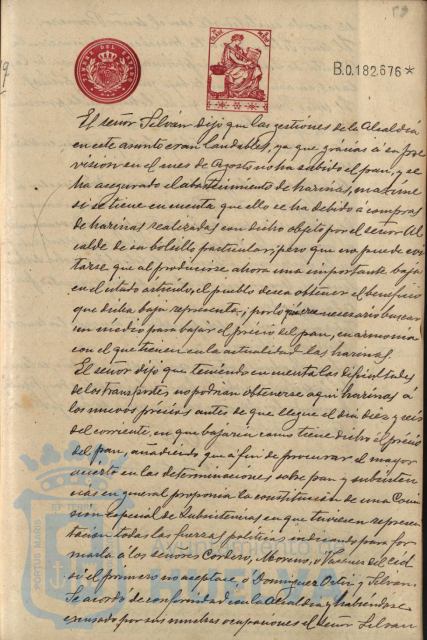 59
B.0.182.676*
El señor Selván dijo que las gestiones de la Alcaldía
en este asunto eran laudables, ya que gracias á su pre
vision en el mes de Agosto no ha subido el pan, y se
ha asegurado el abastecimiento de harinas, máxime
si se tiene en cuenta que ello se ha debido á compras
de harinas realizadas con dicho objeto por el señor Al
calde de su bolsillo particular; pero que no puede evi
tarse que al producirse ahora una importante baja
en el estado artículo, el pueblo desea obtener el beneficio
que dicha baja representa; por lo que era necesario buscar
un medio para bajar el precio del pan, en armonía
con el que tienen en la actualidad las harinas.
El señor dijo que teniendo en cuenta las dificultades
de los transportes, no podrían obtenerse aquí harinas á
los nuevos precios antes de que llegue el día diez y seis
del corriente, en que bajaría como tiene dicho el precio
del pan, añadiendo que á fin de procurar el mayor
acierto en las determinaciones sobre pan y subsisten
cias en general proponía la constitución de una Comi
sion Especial de Subsistencias en que tuviesen represen
tación todas las fuerzas políticas indicando para for
marla á los señores Cordero, Moreno, ó Vazquez del Cid
si el primero no aceptase, ó Dominguez Ortiz y Selvan.
Se acordó de conformidad con la Alcaldía y habiéndose
excusado por sus muchas ocupaciones el señor Selvan
PORTUS MARIS